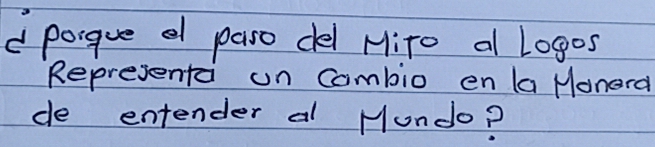 ¿Porque el paso del Mito al Logos
Representa un Cambio en la Manera
de entender al Mundo?